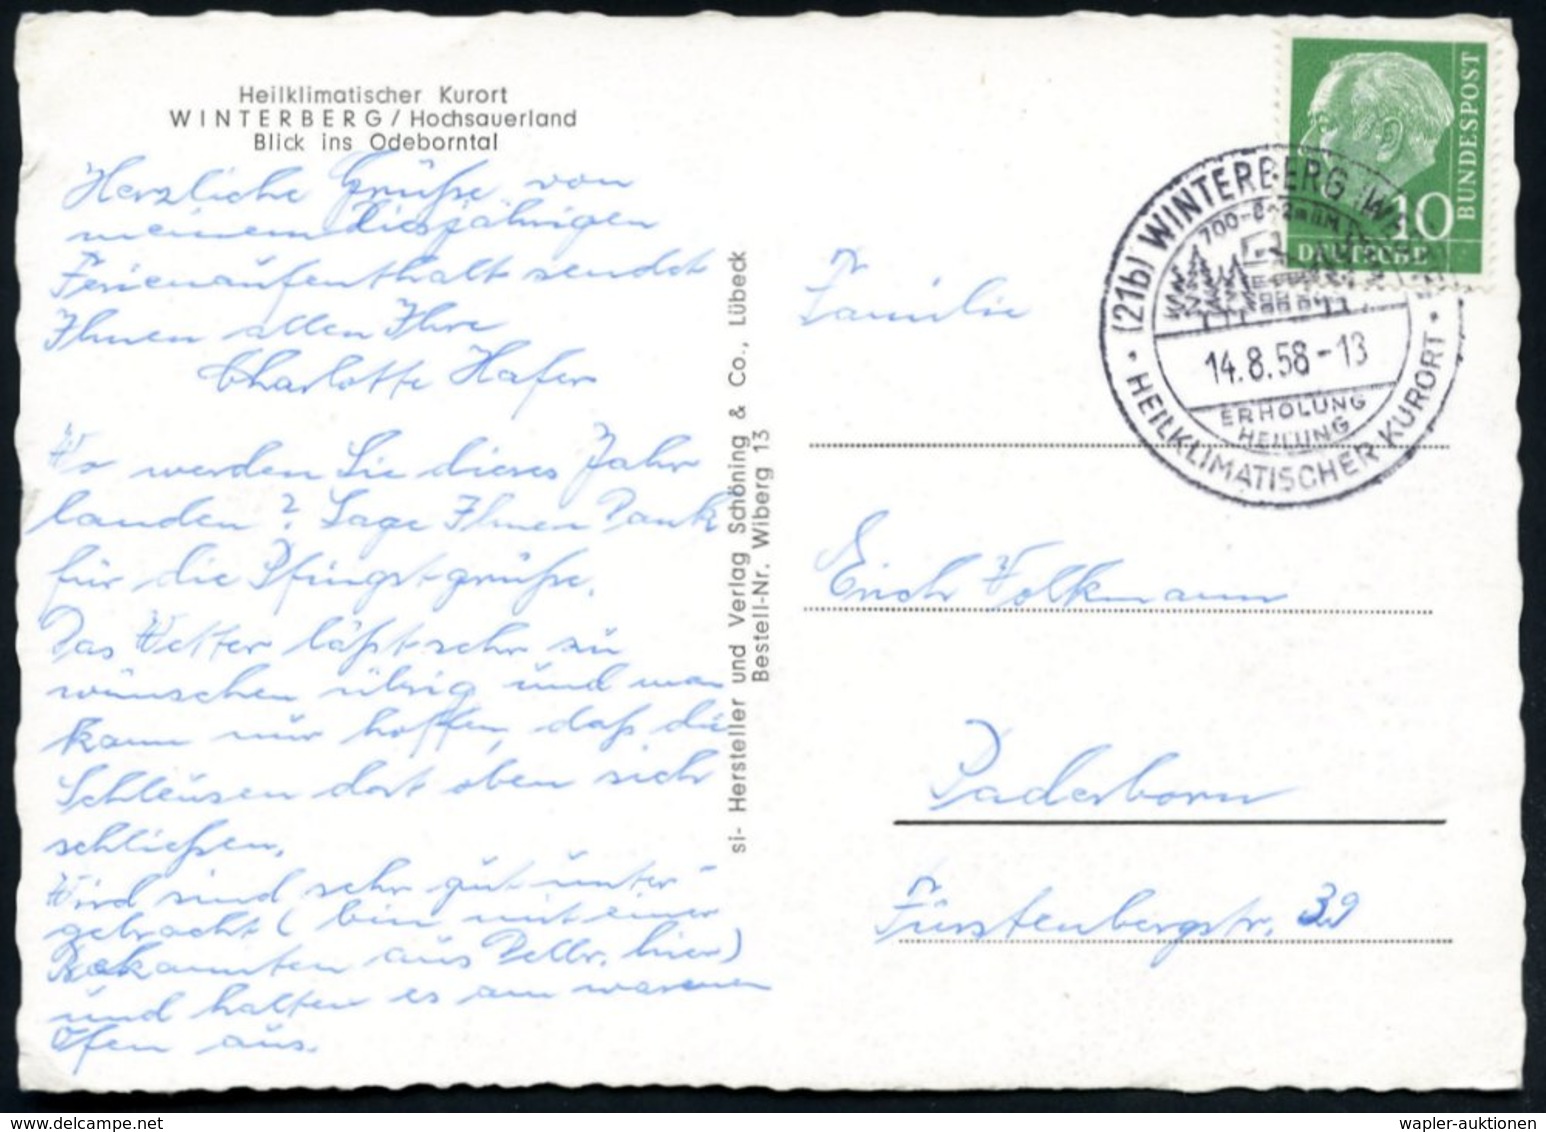 Heilklimatischer Kurort
WINTERBERG/Hochsauerland
Blick ins Odeborntal
Herzliche Grüße von
meinem diesjährigen
Ferienaufenthalt sendet
Ihnen allen Ihre
Charlotte Hafer
Wo werden Sie dieses Jahr
landen? Sage Ihnen Dank
für die Pfingstgrüße.
Das Wetter läßt sehr zu
wünschen übrig und man
kann nur hoffen, daß die
Schleusen dort oben sich
schließen.
Wird sind sehr gut unter-
gebracht (bin mit einer
Bekannten aus Dellbr. hier)
und halten es am warmen
Ofen aus.
si- Hersteller und Verlag Schöning & Co., Lübeck
Bestell-Nr. Wiberg 13
DEUTSCHE
BUNDESPOST
10
(21b) WINTERBERG
14.8.58-13
ERHOLUNG
HEILUNG
HEILKLIMATISCHER KURORT
Familie
Erich Volkmann
Paderborn
Fürstenbergstr. 39
wapler-auktionen